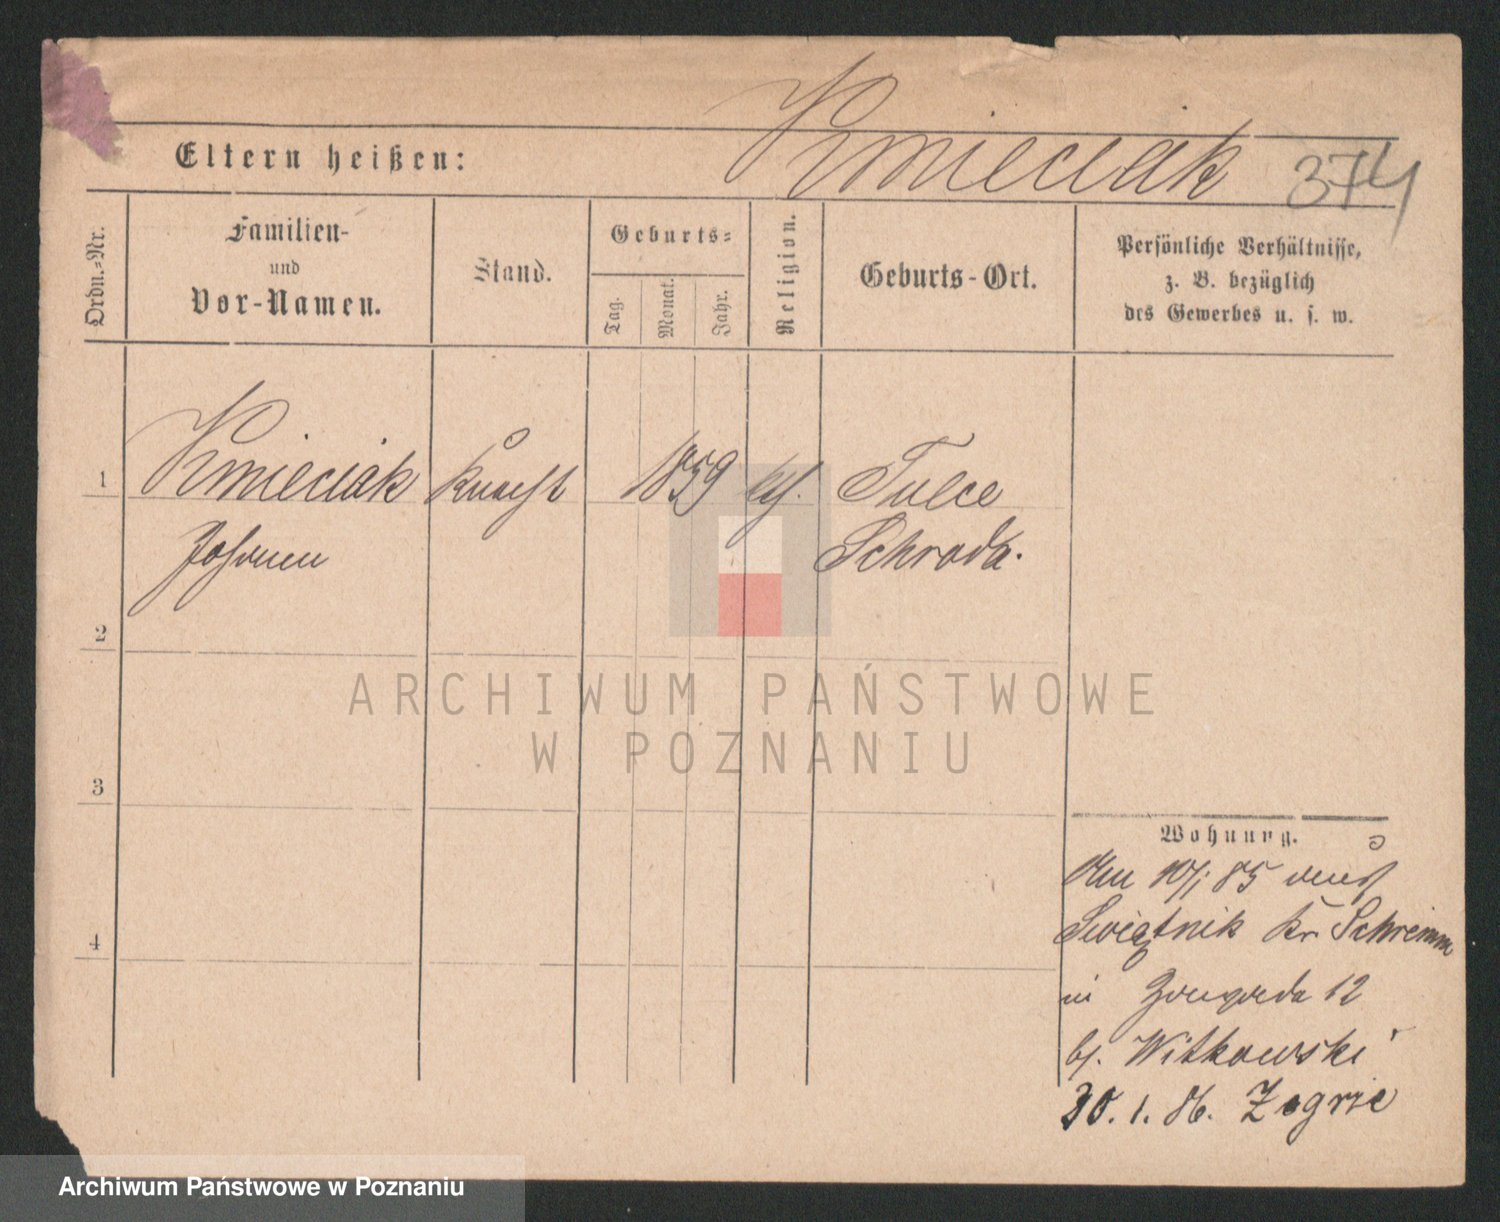 Kmieciak 374
Eltern heißen:
Ordn.-Nr.
Familien-
und
Vor-Namen.
Stand.
Geburts-
Tag.
Monat.
Jahr.
Religion.
Geburts-Ort.
Persönliche Verhältnisse,
z. B. bezüglich
des Gewerbes u. s. w.
1 Kmieciak Knecht 1859 kth. Tulce
Johann Schroda.
2
3
4
Wohnung.
Am 10/1 85 nach
Swiątnik Kr Schrimm
in Zongorda 12
bj. Witkowski
30. 1. 86. Zegrze
ARCHIWUM PAŃSTWOWE
W POZNANIU
Archiwum Państwowe w Poznaniu